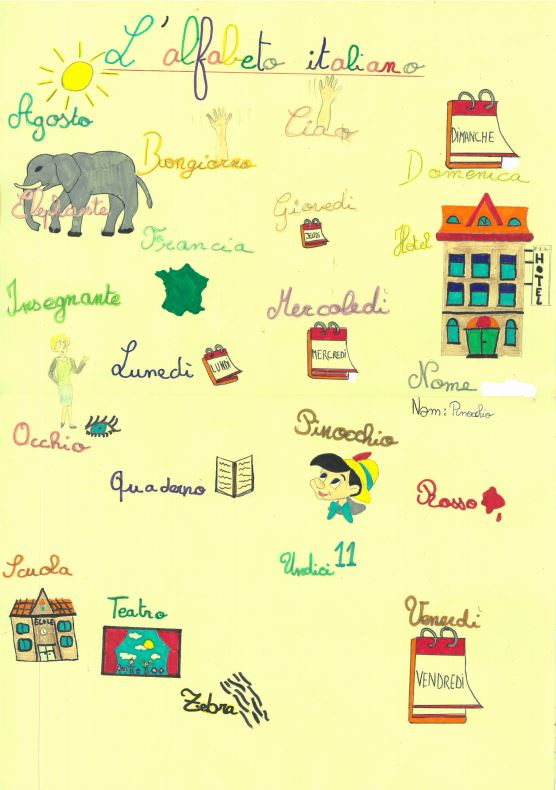 L'alfabeto italiano
Agosto
Buongiorno
Ciao
DIMANCHE
Domenica
Elefante
Francia
Giovedì
JEUDI
Hotel
HOTEL
Insegnante
Lunedì
LUNDI
Mercoledì
MERCREDI
Nome
Nom : Pinocchio
Occhio
Pinocchio
Quaderno
Rosso
Scuola
ÉCOLE
Teatro
Undici 11
Venerdì
VENDREDI
Zebra